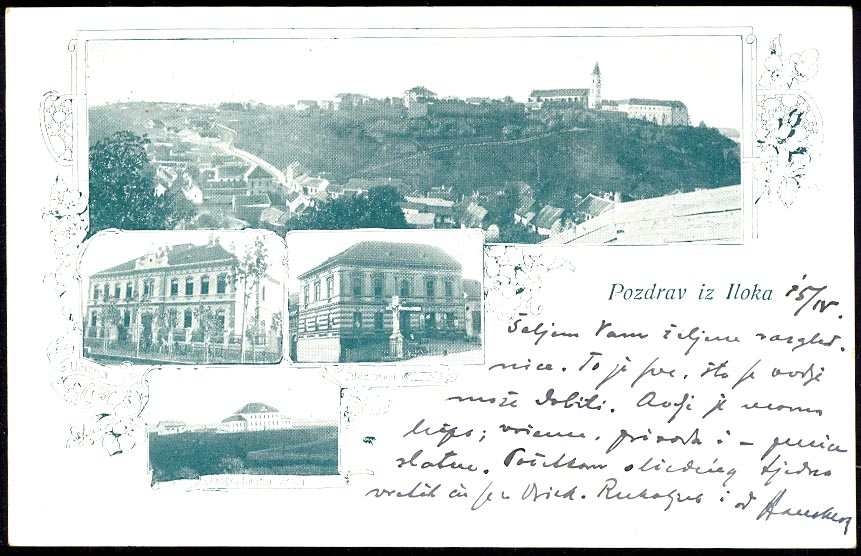 Pozdrav iz Iloka
15/IV.
Šaljem Vam željene razgled-
nice. To je sve, što se ovdje
može dobiti. Ovdje je veoma
lepo; vrieme, priroda i –
zlatne. Početkom sliedećeg tjedna
vratit ću se u Osiek. Rukoljub i od